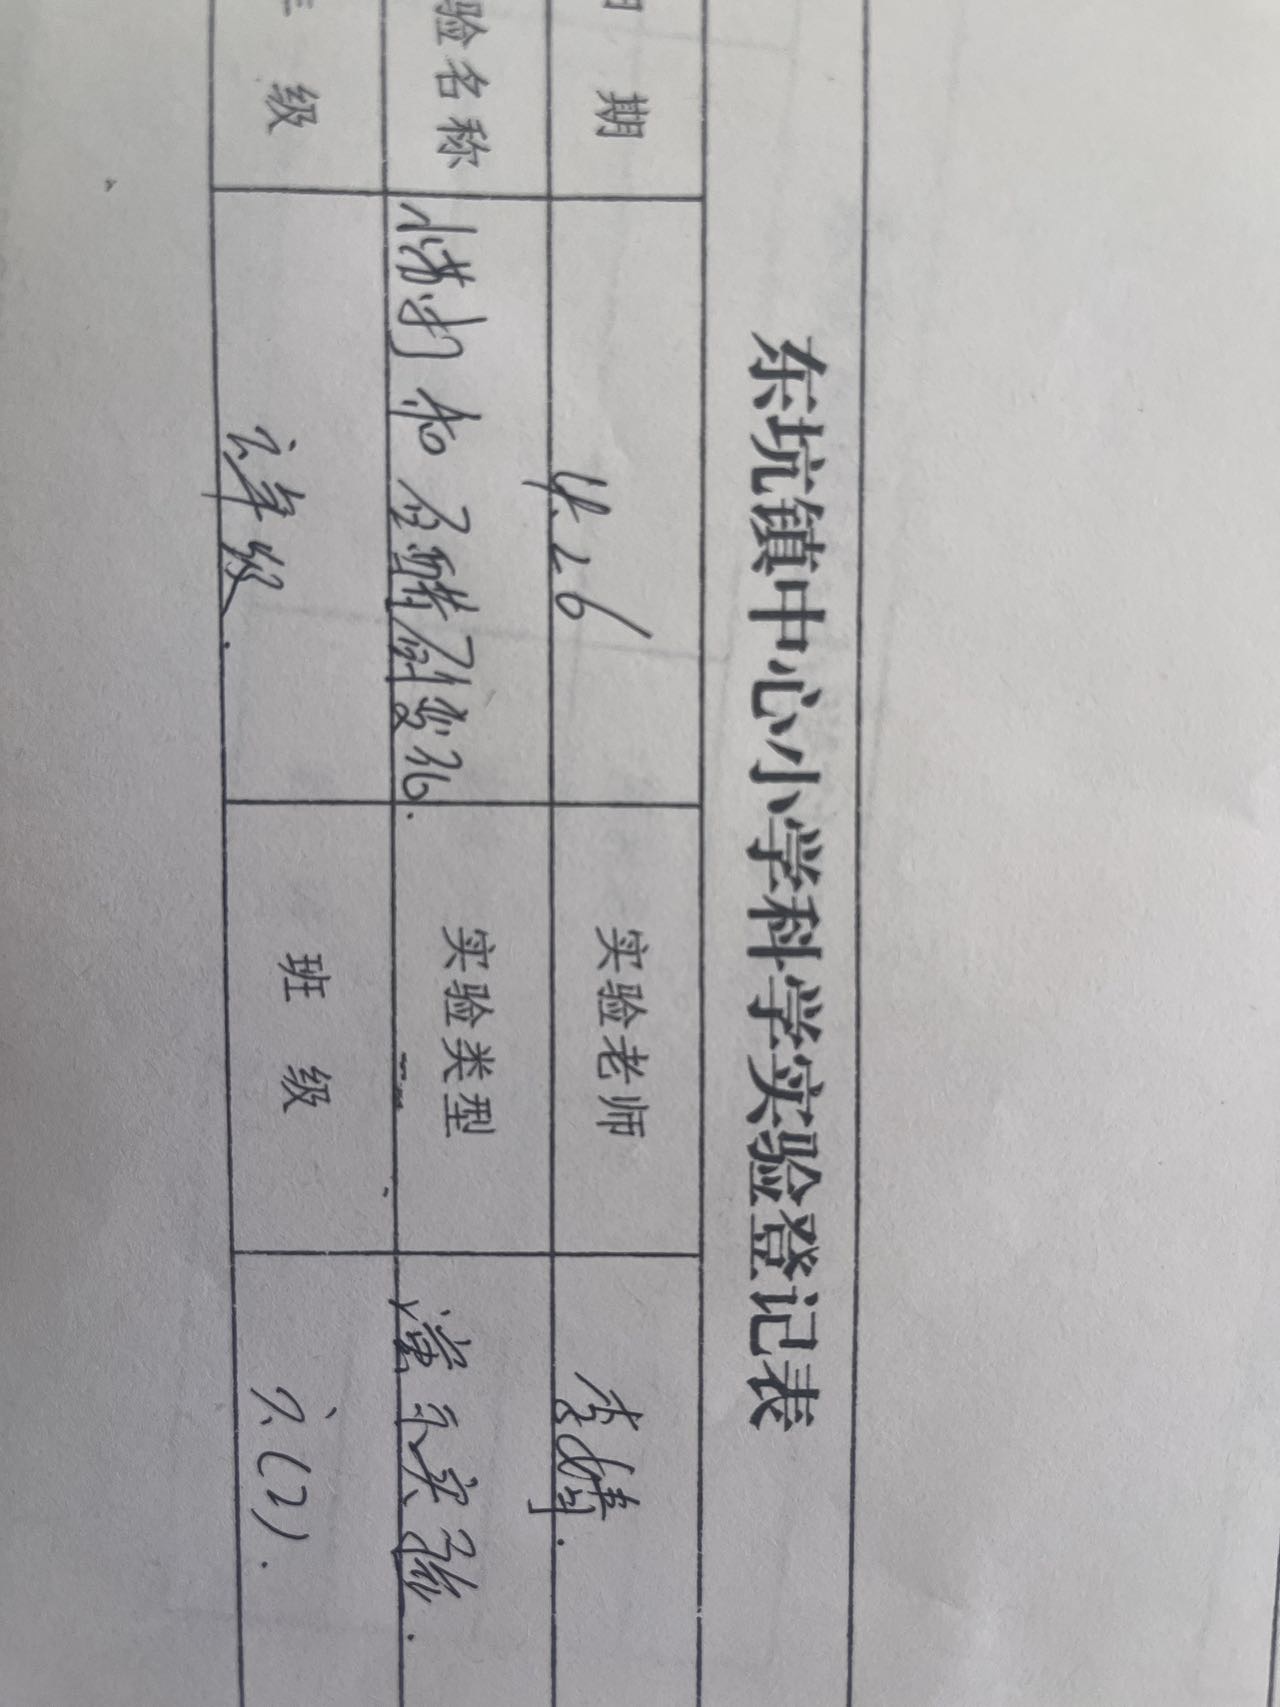 东坑镇中心小学科学实验登记表
期 4.26 实验老师 李婧.
验名称 和白醋 变化. 实验类型 演示实验.
级 六年级. 班 级 六(2).